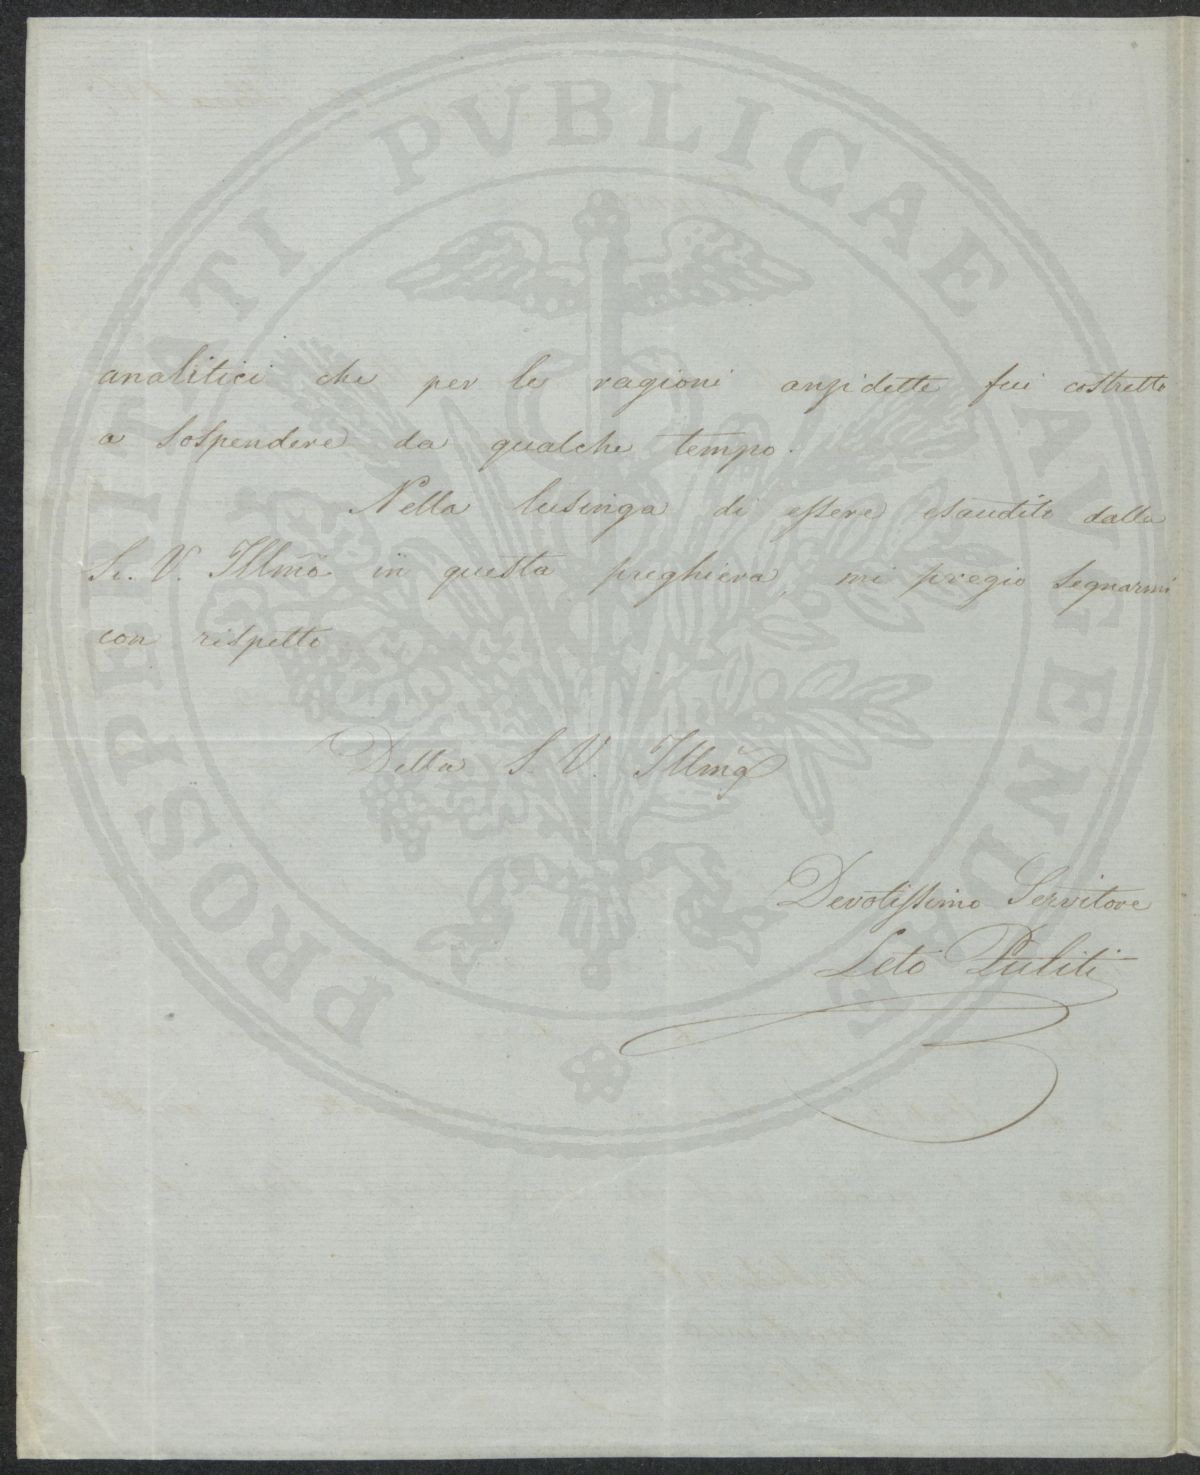 analitici che per le ragioni anzidette fui costretto
a sospendere da qualche tempo.
Nella lusinga di essere esaudito dalla
S. V. Illma in questa preghiera, mi pregio segnarmi
con rispetto
Della S. V. Illma
Devotissimo Servitore
Leto Puliti
PROSPERITATI PVBLICAE AVGENDAE